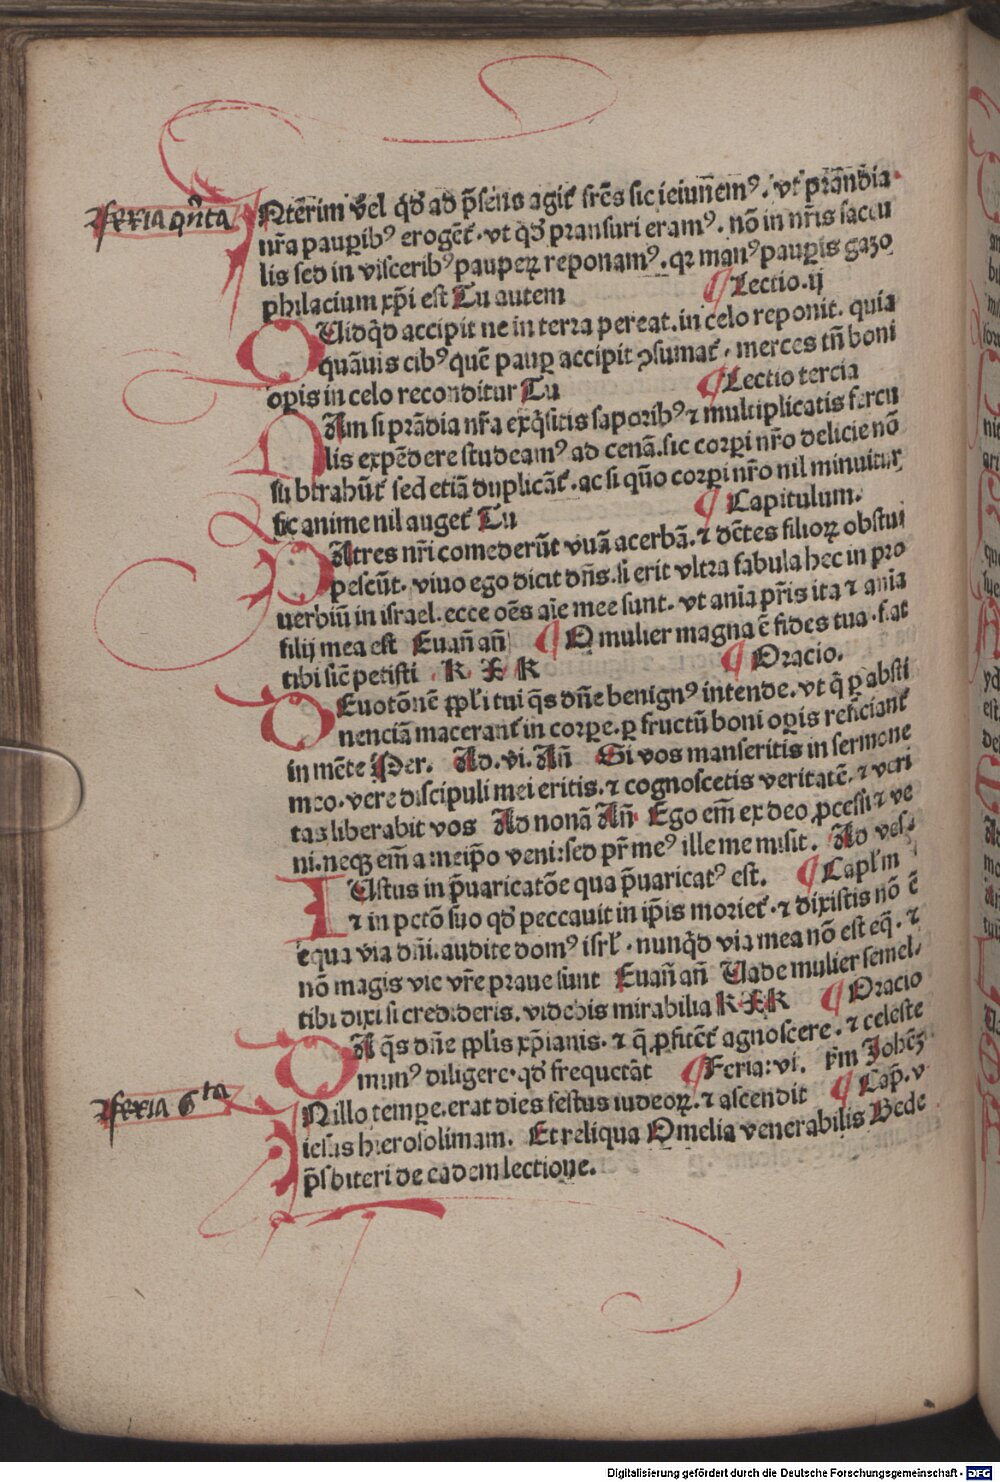 feria qnta
INterim vel qd ad psens agit frēs sic ieiunem⁹. vt prandia
nr̄a pauꝑib⁹ eroget. vt qd pransuri eram⁹. nō in nr̄is saccu
lis sed in visceribꝰ pauperꝝ reponam⁹. qꝛ man⁹ pauꝑis gazo
philacium xp̄i est Tu autem ¶ Lectio .ij
QUidq̇d accipit ne in terra pereat. in celo reponit. quia
quāuis cib⁹ quē pauꝑ accipit ꝯsumat̄. merces tn̄ boni
oꝑis in celo reconditur Tu ¶ Lectio tercia
NAm si prādia nr̄a exq̇sitis saporib⁹ ⁊ multiplicatis fercu
lis expēdere studeam⁹ ad cenā. sic corꝑi nr̄o delicie nō
subtrahūt sed etiā duplicāt̄. ac si quo corꝑi nr̄o nil minuitur
sic anime nil auget̄ Tu ¶ Capitulum.
PAtres nr̄i comederūt vuā acerbā. ⁊ dētes filioꝝ obstu
pescūt. viuo ego dicit dn̄s. si erit vltra fabula hec in pro
uerbiū in israel. ecce oēs aīe mee sunt. vt anīa pr̄is ita ⁊ anīa
filij mea est Euan̄ an̄ ¶ O mulier magna ē fides tua. fiat
tibi sicē petisti K X K ¶ Oracio.
DEuotōnē ppl̄i tui q̄s dn̄e benign⁹ intende. vt q̄ ꝑ absti
nenciā macerant̄ in corꝑe. ꝑ fructū boni oꝑis reficiant̄
in mēte Per. Ad .vi. An̄ Si vos manseritis in sermone
meo. vere discipuli mei eritis. ⁊ cognoscetis veritatē. ⁊ veri
tas liberabit vos Ad nonā An̄ Ego em̄ ex deo ꝓcessi ⁊ ve
ni. neqꝫ em̄ a meip̄o veni: sed pr̄ me⁹ ille me misit. Ad ves.
IUstus in p̄uaricatōe qua p̄uaricat⁹ est. ¶ Capl'm
⁊ in pctō suo qd peccauit in ip̄is moriet̄. ⁊ dixistis nō ē
equa via dn̄i. audite dom⁹ isrl̄. nunq̇d via mea nō est eq̄. ⁊
nō magis vie vr̄e praue sunt Euan̄ an̄ Uade mulier semel.
tibi dixi si credideris. videbis mirabilia K X K ¶ Oracio
DA q̄s dn̄e ppl̄is xp̄ianis. ⁊ q̄ ꝓfitēt̄ agnoscere. ⁊ celeste
mun⁹ diligere. qd frequētāt ¶ Feria: vi. s̄m Johēꝫ
feria 6ta
INillo tempe. erat dies festus iudeoꝝ. ⁊ ascendit ¶ Cap̄. v
iesus hierosolimam. Et reliqua Omelia venerabilis Bede
p̄sbiteri de eadem lectione.
Digitalisierung gefördert durch die Deutsche Forschungsgemeinschaft - DFG